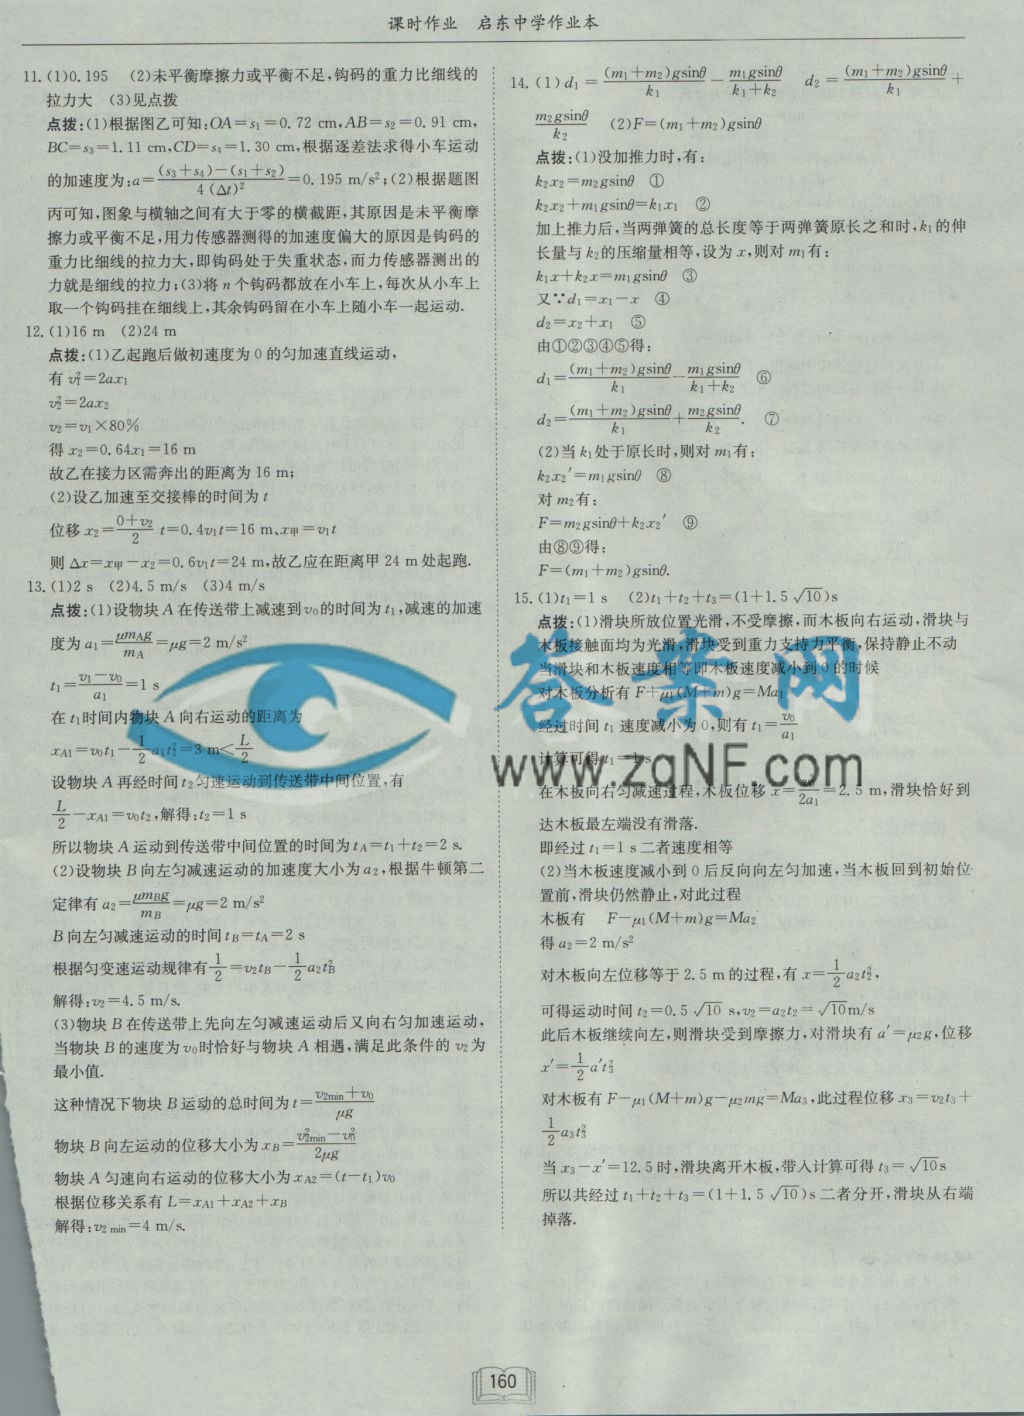 课时作业 启东中学作业本
11.(1)0.195 (2)未平衡摩擦力或平衡不足,钩码的重力比细线的
拉力大 (3)见点拨
点拨:(1)根据图乙可知:OA=s₁=0.72 cm,AB=s₂=0.91 cm,
BC=s₃=1.11 cm,CD=s₄=1.30 cm,根据逐差法求得小车运动
的加速度为:a=\frac{(s₃+s₄)-(s₁+s₂)}{4(Δt)²}=0.195 m/s²;(2)根据题图
丙可知,图象与横轴之间有大于零的横截距,其原因是未平衡摩
擦力或平衡不足,用力传感器测得的加速度偏大的原因是钩码的
重力比细线的拉力大,即钩码处于失重状态,而力传感器测出的
力就是细线的拉力;(3)将 n 个钩码都放在小车上,每次从小车上
取一个钩码挂在细线上,其余钩码留在小车上随小车一起运动.
12.(1)16 m (2)24 m
点拨:(1)乙起跑后做初速度为 0 的匀加速直线运动,
有 v₁²=2ax₁
v₂²=2ax₂
v₂=v₁×80%
得 x₂=0.64x₁=16 m
故乙在接力区需奔出的距离为 16 m;
(2)设乙加速至交接棒的时间为 t
位移 x₂=\frac{0+v₂}{2} t=0.4v₁t=16 m、x甲=v₁t
则 Δx=x甲-x₂=0.6v₁t=24 m,故乙应在距离甲 24 m 处起跑.
13.(1)2 s (2)4.5 m/s (3)4 m/s
点拨:(1)设物块 A 在传送带上减速到 v₀的时间为 t₁,减速的加速
度为 a₁=\frac{μm_Ag}{m_A}=μg=2 m/s²
t₁=\frac{v₁-v₀}{a₁}=1 s
在 t₁时间内物块 A 向右运动的距离为
x_{A1}=v₀t₁-\frac{1}{2}a₁t₁²=3 m<\frac{L}{2}
设物块 A 再经时间 t₂匀速运动到传送带中间位置,有
\frac{L}{2}-x_{A1}=v₀t₂,解得:t₂=1 s
所以物块 A 运动到传送带中间位置的时间为 t_A=t₁+t₂=2 s.
(2)设物块 B 向左匀减速运动的加速度大小为 a₂,根据牛顿第二
定律有 a₂=\frac{μm_Bg}{m_B}=μg=2 m/s²
B 向左匀减速运动的时间 t_B=t_A=2 s
根据匀变速运动规律有\frac{1}{2}=v₂t_B-\frac{1}{2}a₂t_B²
解得:v₂=4.5 m/s.
(3)物块 B 在传送带上先向左匀减速运动后又向右匀加速运动,
当物块 B 的速度为 v₀时恰好与物块 A 相遇,满足此条件的 v₂为
最小值.
这种情况下物块 B 运动的总时间为 t=\frac{v_{2min}+v₀}{μg}
物块 B 向左运动的位移大小为 x_B=\frac{v_{2min}²-v₀²}{2μg}
物块 A 匀速向右运动的位移大小为 x_{A2}=(t-t₁)v₀
根据位移关系有 L=x_{A1}+x_{A2}+x_B
解得:v_{2 min}=4 m/s.
14.(1)d₁=\frac{(m₁+m₂)gsinθ}{k₁}-\frac{m₁gsinθ}{k₁+k₂} d₂=\frac{(m₁+m₂)gsinθ}{k₁}+
\frac{m₂gsinθ}{k₂} (2)F=(m₁+m₂)gsinθ
点拨:(1)没加推力时,有:
k₂x₂=m₂gsinθ ①
k₂x₂+m₁gsinθ=k₁x₁ ②
加上推力后,当两弹簧的总长度等于两弹簧原长之和时,k₁的伸
长量与 k₂的压缩量相等,设为 x,则对 m₁有:
k₁x+k₂x=m₁gsinθ ③
又∵d₁=x₁-x ④
d₂=x₂+x₁ ⑤
由①②③④⑤得:
d₁=\frac{(m₁+m₂)gsinθ}{k₁}-\frac{m₁gsinθ}{k₁+k₂} ⑥
d₂=\frac{(m₁+m₂)gsinθ}{k₁}+\frac{m₂gsinθ}{k₂}. ⑦
(2)当 k₁处于原长时,则对 m₁有:
k₂x₂′=m₁gsinθ ⑧
对 m₂有:
F=m₂gsinθ+k₂x₂′ ⑨
由⑧⑨得:
F=(m₁+m₂)gsinθ.
15.(1)t₁=1 s (2)t₁+t₂+t₃=(1+1.5√10)s
点拨:(1)滑块所放位置光滑,不受摩擦,而木板向右运动,滑块与
木板接触面均为光滑,滑块受到重力支持力平衡,保持静止不动
当滑块和木板速度相等即木板速度减小到 0 的时候
对木板分析有 F+μ₁(M+m)g=Ma₁
经过时间 t₁ 速度减小为 0,则有 t₁=\frac{v₀}{a₁}
计算可得 t₁=1 s
在木板向右匀减速过程,木板位移 x=\frac{v₀²}{2a₁}=2.5 m,滑块恰好到
达木板最左端没有滑落.
即经过 t₁=1 s 二者速度相等
(2)当木板速度减小到 0 后反向向左匀加速,当木板回到初始位
置前,滑块仍然静止,对此过程
木板有 F-μ₁(M+m)g=Ma₂
得 a₂=2 m/s²
对木板向左位移等于 2.5 m 的过程,有 x=\frac{1}{2}a₂t₂²,
可得运动时间 t₂=0.5√10 s,v₂=a₂t₂=√10m/s
此后木板继续向左,则滑块受到摩擦力,对滑块有 a′=μ₂g,位移
x′=\frac{1}{2}a′t₃²
对木板有 F-μ₁(M+m)g-μ₂mg=Ma₃,此过程位移 x₃=v₂t₃+
\frac{1}{2}a₃t₃²
当 x₃-x′=12.5 时,滑块离开木板,带入计算可得 t₃=√10s
所以共经过 t₁+t₂+t₃=(1+1.5√10)s 二者分开,滑块从右端
掉落.
答案网
www.zqNF.com
160